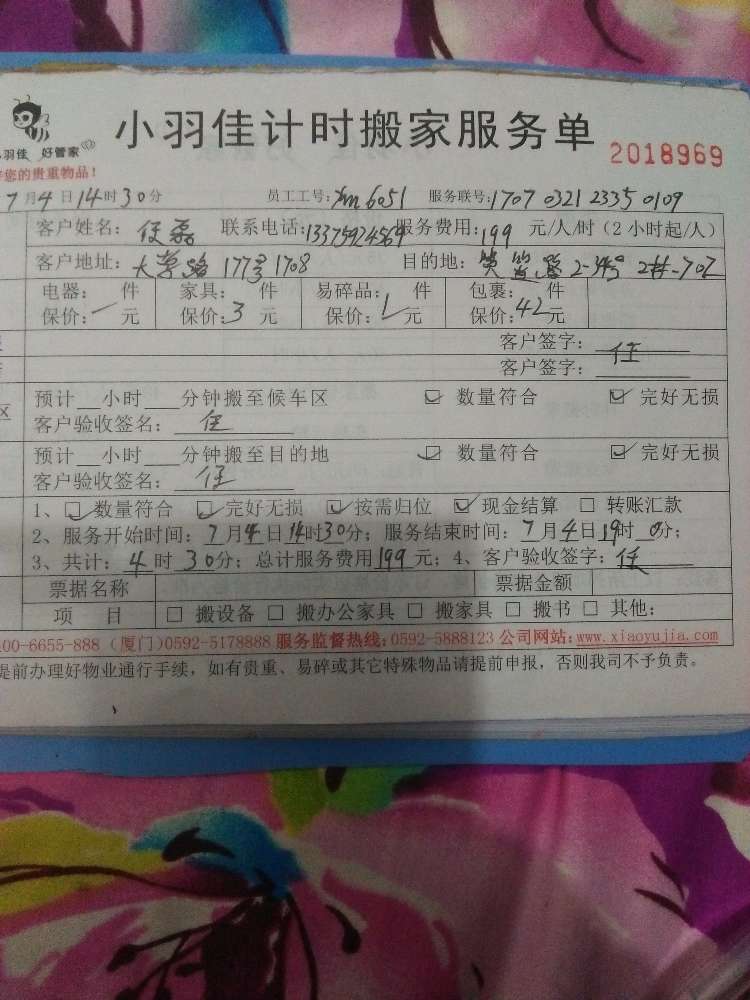 小羽佳计时搬家服务单
2018969
小羽佳 好管家
您的贵重物品!
7月4日14时30分 员工工号:Xm6051 服务联号:1707 0321 2335 0109
客户姓名:任磊 联系电话:13375924569 服务费用:199 元/人/时(2小时起/人)
客户地址:大学路 177号 1708 目的地: 2-34号 2#-702
电器: 件 家具: 件 易碎品: 件 包裹: 件
保价:一元 保价:3元 保价:1元 保价:42元
客户签字:任
客户签字:
预计 小时 分钟搬至候车区 ☑ 数量符合 ☑ 完好无损
客户验收签名:任
预计 小时 分钟搬至目的地 ☑ 数量符合 ☑ 完好无损
客户验收签名:任
1、☑数量符合 ☑完好无损 ☑按需归位 ☑现金结算 □转账汇款
2、服务开始时间:7月4日14时30分;服务结束时间:7月4日19时0分;
3、共计:4时30分;总计服务费用199元;4、客户验收签字:任
票据名称 票据金额
项 目 □搬设备 □搬办公家具 □搬家具 □搬书 □其他:
00-6655-888(厦门)0592-5178888 服务监督热线:0592-5888123 公司网站:www.xiaoyujia.com
提前办理好物业通行手续,如有贵重、易碎或其它特殊物品请提前申报,否则我司不予负责。